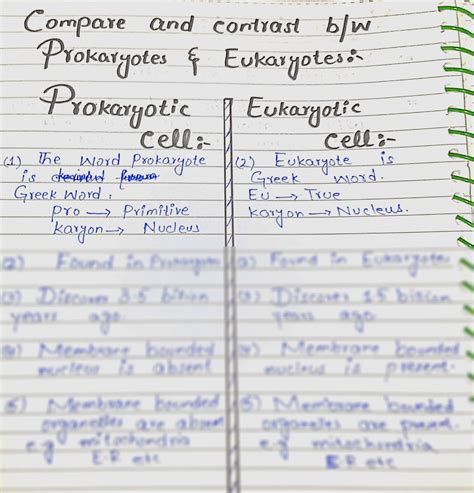 Compare and contrast b/w
Prokaryotes & Eukaryotes:-
Prokaryotic
Cell:-
(1) The word Prokaryote
is
Greek Word,
Pro → Primitive
Karyon → Nucleus
Eukaryotic
Cell:-
(2) Eukaryote is
Greek Word.
Eu → True
Karyon → Nucleus.
(2) Found in
(3) Discover 3.5 billion
years ago
(4) Membrane bounded
nucleus is absent
(5) Membrane bounded
organelles are absent
e.g mitochondria
E.R etc
(2) Found in Eukaryote
(3) Discover 1.5 billion
years ago.
(4) Membrane bounded
nucleus is present.
(5) Membrane bounded
organelles are present.
e.g mitochondria
E.R etc